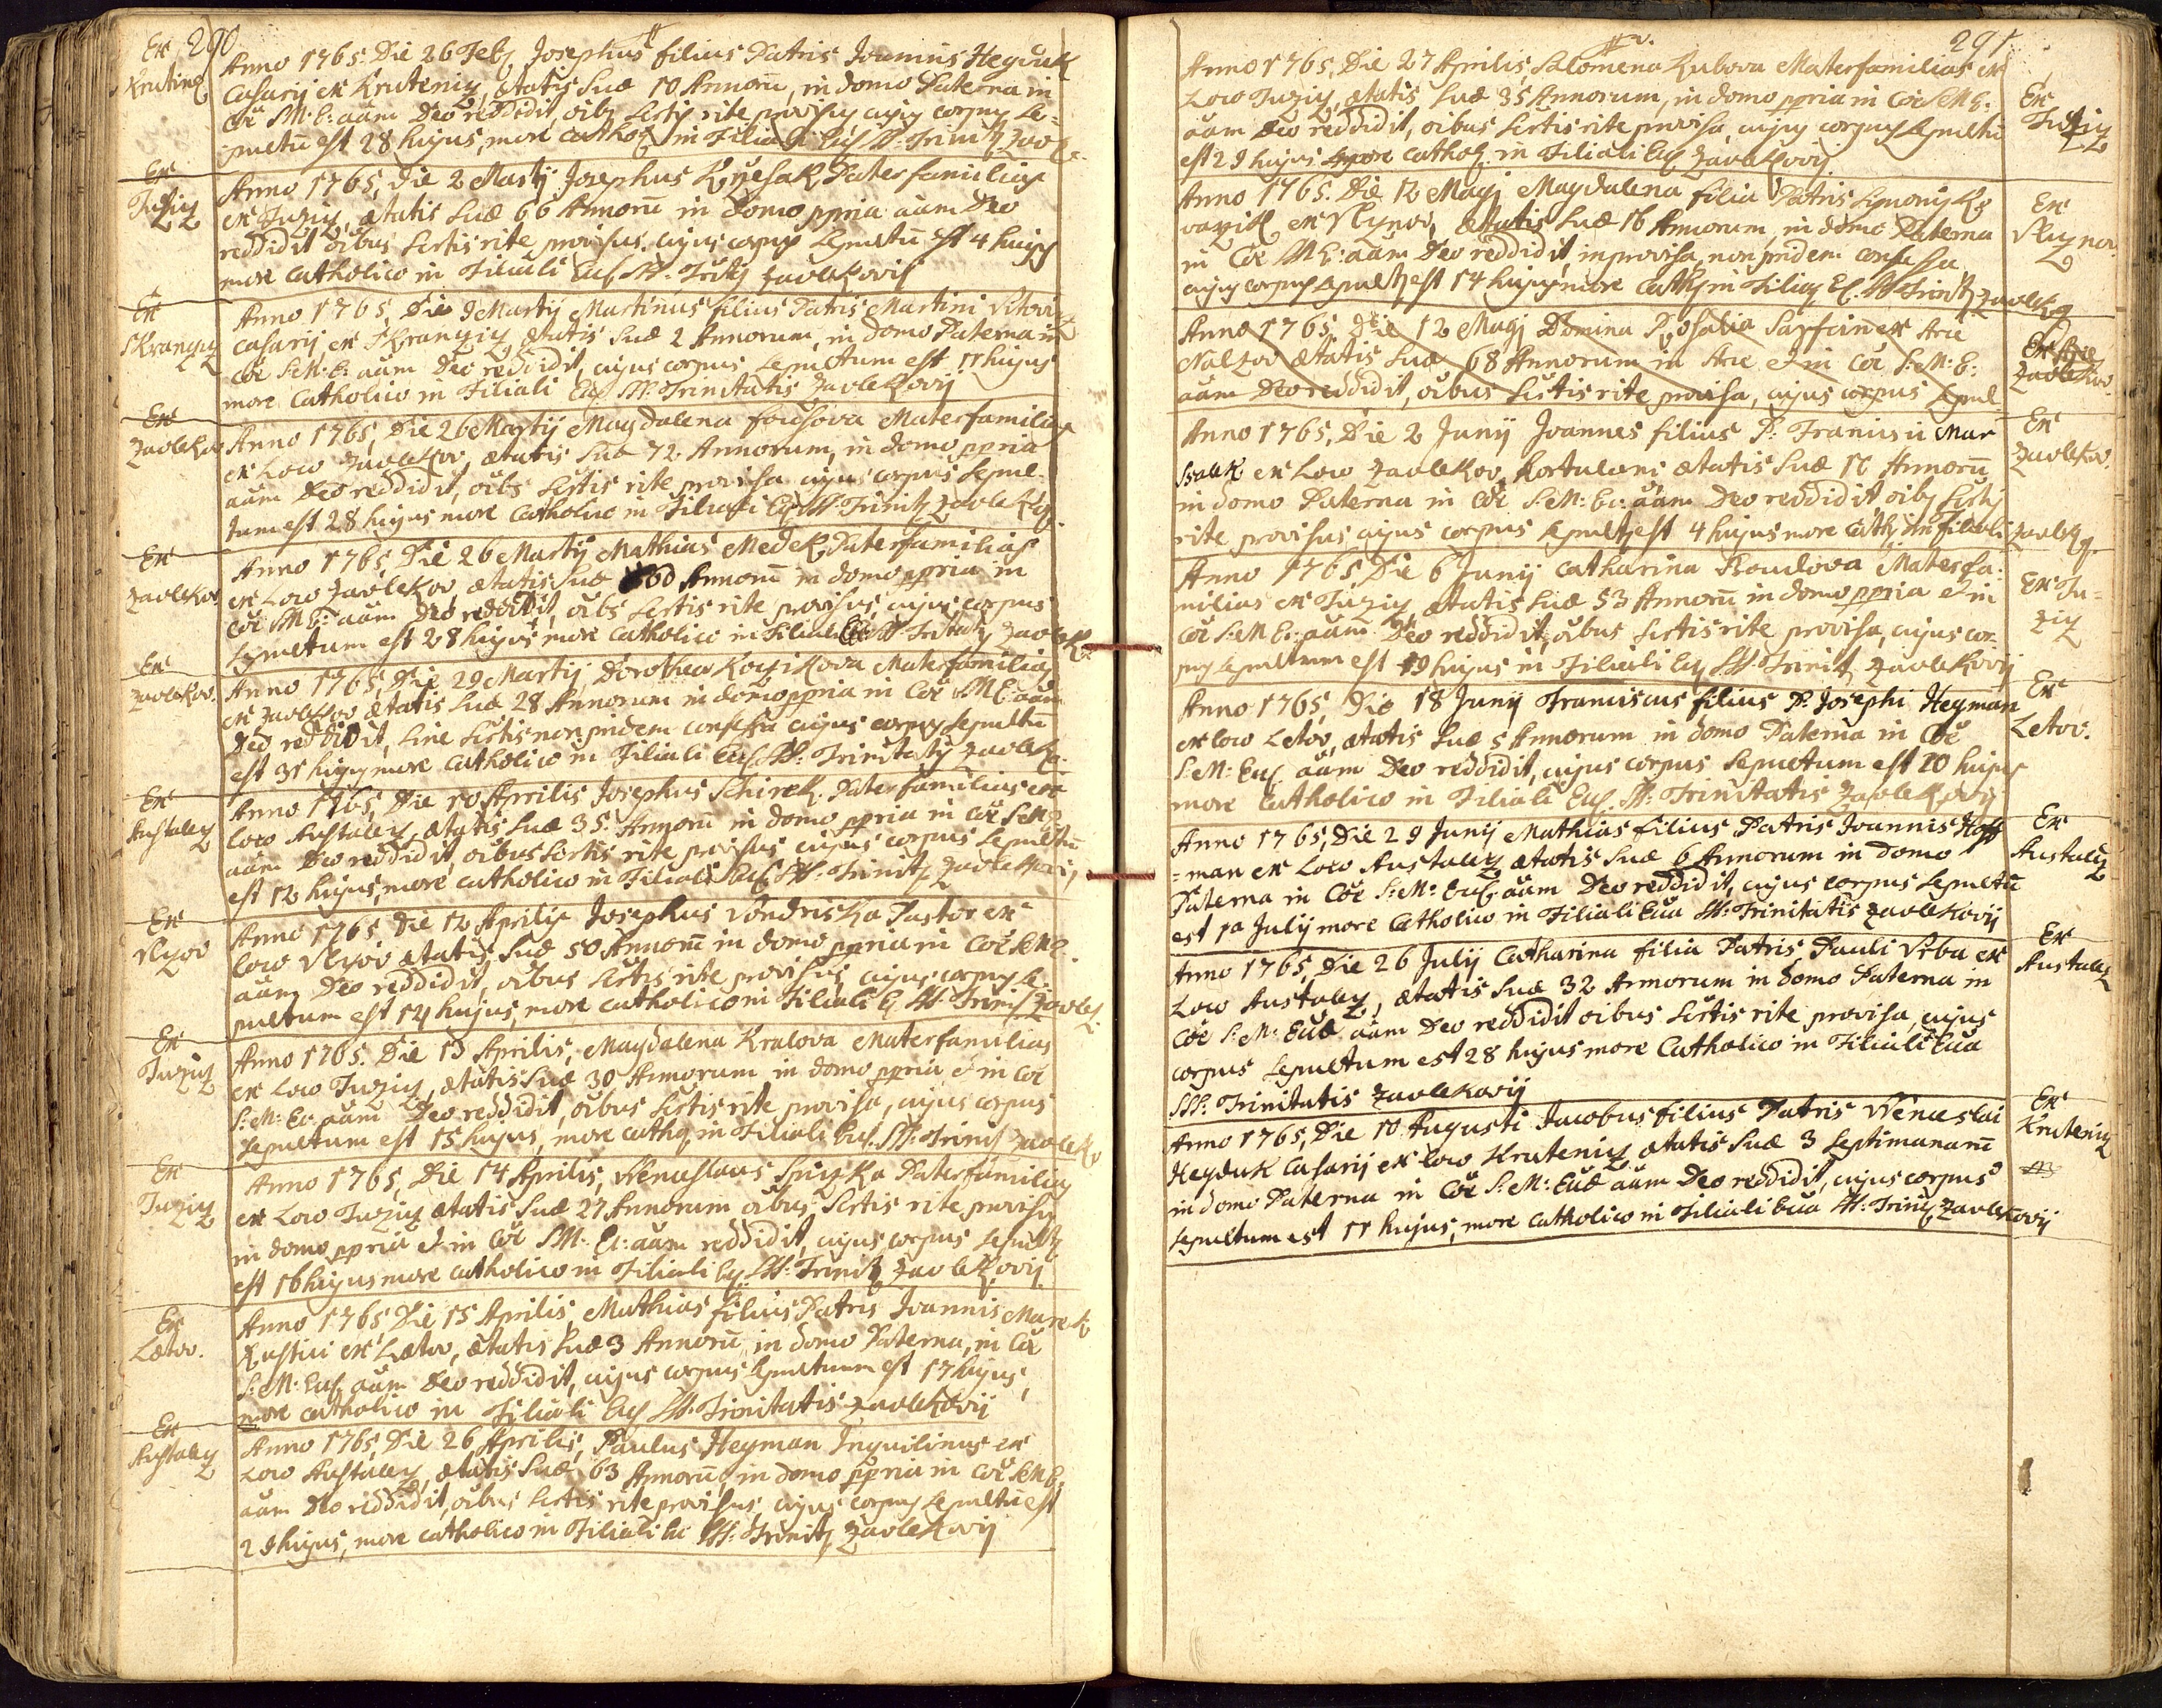 290
Ex
Kruteniz
Anno 1765. Die 26 Feb, Josephus filius Patris Joannis Heyduk
Casarij ex Kruteniz, ætatis suæ 10 Annorũ, in domo Paterna in
Coẽ S: M: E: aãm Deo reddidit, oĩbs Scrtis rite provisus cujus corpus Se=
pultũ est 28 hujus, more Cathol in Filiali Eccl SS: Trinit Zavle
Ex
Tuziz
Anno 1765, Die 2 Martij Josephus Paterfamilias
ex Tuziz, ætatis suæ 66 Annorũ in Domo ppria aãm Deo
reddidit oĩbus Scrtis rite provisus, cujus corpus Sepultũ est 4 hujus
more Catholico in Filiali Eccl SS: Tritis Zavlekovij
Ex
Anno 1765, Die 9 Martij Martinus filius Patris Martini
Casarij ex ætatis suæ 2 Annorum, in domo Paterna in
coẽ S: M: E: aãm Deo reddidit, cujus corpus Sepultum est 11 hujus
more Catholico in Filiali Eccl SS: Trinitatis Zavlekovij
Ex
Zavlekov
Anno 1765, Die 26 Martij Magdalena Materfamilias
ex Loco Zavlekov, ætatis suæ 72 Annorum, in domo ppria
aãm Deo reddidit, oĩbs Scrtis rite provisa cujus corpus Sepul=
tum est 28 hujus more Catholico in Filiali Eccl SS: Trinit Zavlekov.
Ex
Zavlekov
Anno 1765, Die 26 Martij Mathias Medek, Paterfamilias
ex Loco Zavlekov, ætatis suæ 60 Annorũ in domo ppria in
Coẽ S M E: aãm Deo reddidit, oĩbs Scrtis rite provisus, cujus corpus
Sepultum est 28 hujus more Catholico in Filiali Ec: SS: Tritatis Zavlek
Ex
Zavlekov.
Anno 1765, Die 29 Martij, Dorothea Materfamilias
ex Zavlekov ætatis suæ 28 Annorum in domo ppria in Coẽ S M E: aãm
Deo reddidit, sine Scrtis non pridem confessa cujus corpus Sepultũ
est 31 hujus more Catholico in Filiali Eccl SS: Trinitatis Zavlek.
Ex
Austalez
Anno 1765, Die 10 Aprilis Josephus Schirek Paterfamilias ex
loco Austalez, ætatis suæ 35 Annorũ in domo ppria in Coẽ S M E
aãm Deo reddidit, oĩbus Scrtis rite provisus cujus corpus Sepultũ
est 12 hujus, more catholico in Filiali Eccl SS: Trinit Zavlekovij
Ex
Anno 1765 Die 12 Aprilis Josephus Vondriska Pastor ex
loco ætatis suæ 50 Annorũ in domo ppria in Coẽ S M E.
aãm Deo reddidit, oĩbus Scrtis rite provisus, cujus corpus Se=
pultum est 14 hujus, more catholico in Filiali E SS: Trinit Zavlek.
Ex
Tuziz
Anno 1765. Die 13 Aprilis, Magdalena Kralova Materfamilias
ex Loco Tuziz, ætatis suæ 30 Annorum in domo ppria & in Coẽ
S: M: Ec: aãm Deo reddidit, oĩbus Scrtis rite provisa, cujus corpus
Sepultum est 15 hujus, more cathol in Filiali Eccl. SS: Trinit Zavlek
Ex
Tuziz
Anno 1765, Die 14 Aprilis, Wenceslaus Paterfamilias
ex Loco Tuziz ætatis suæ 27 Annorum oĩbus Scrtis rite provisus
in domo ppria & in Coẽ S M: Ec: aãm reddidit, cujus corpus Sepult
est 16 hujus more catholico in Filiali Ecc SS: Trinit Zavlekovij
Ex
Lætov.
Anno 1765 Die 15 Aprilis, Mathias filius Patris Joannis Marek
Rustici ex Lætov, ætatis suæ 3 Annorũ in domo Paterna, in Coẽ
S: M: Eccl. aãm Deo reddidit, cujus corpus Sepultum est 17 hujus,
more Catholico in Filiali Eccl SS: Trinitatis Zavlekovij
Ex
Austalez
Anno 1765, Die 26 Aprilis, Paulus Heyman Inquilinus ex
Loco Austalez, ætatis suæ 63 Annorũ, in domo ppria in Coẽ S M E.
aãm Deo reddidit, oĩbus Scrtis rite provisus, cujus corpus Sepultũ est
29 hujus, more catholico in Filiali Ec SS: Trinit Zavlekovij
291
Anno 1765, Die 27 Aprilis, Salomena Kubova Materfamilias ex
Loco Tuziz, ætatis suæ 35 Annorum, in domo ppria in Coẽ S M E.
aãm Deo reddidit, oĩbus Scrtis rite provisa, cujus corpus Sepultũ
est 29 hujus more Cathol. in Filiali Eccl Zavlekovij
Ex
Tuziz
Anno 1765. Die 12 Maij Magdalena filia Patris Symonis Ko
vazik ex ætatis suæ 16 Annorum, in domo Paterna
in Coẽ M E: aãm Deo reddidit, inprovisa, non pridem confessa
cujus corpus Sepult est 14 hujus more Cath in Filiaj Ec. SS Trinit Zavlek
Ex
Anno 1765, Die 12 Maij Domina Rosalia ex Arce
Nalzov ætatis suæ 68 Annorum in Arce & in Coẽ S: M: E:
aãm Deo reddidit, oĩbus Scrtis rite provisa, cujus corpus Sepul=
Ex Arce
Zavlekov.
Anno 1765, Die 2 Junij Joannes filius P: Francisci Mar
ex Loco Zavlekov, hortulani ætatis suæ 16 Annorũ
in domo Paterna in Coẽ S: M: Ec: aãm Deo reddidit oĩbs Scrtis
rite provisus cujus corpus Sepult est 4 hujus more Cath in filiali Zavlek.
Ex
Zavlekov.
Anno 1765, Die 6 Junij Catharina Materfa=
milias ex Tuziz ætatis suæ 53 Annorũ in domo ppria & in
Coẽ S: M E: aãm Deo reddidit, oĩbus Scrtis rite provisa, cujus cor=
pus Sepultum est 19 hujus in Filiali Eccl SS: Trinit Zavlekovij
Ex Tu=
ziz
Anno 1765, Die 18 Junij Franciscus filius P: Josephi Heyman
ex loco Letov, ætatis suæ 5 Annorum in domo Paterna in Coẽ
S: M: Eccl. aãm Deo reddidit, cujus corpus Sepultum est 20 hujus
more Catholico in Filiali Eccl. SS: Trinitatis Zavlekovij
Ex
Letov.
Anno 1765, Die 29 Junij Mathias filius Patris Joannis Hoff
=man ex Loco Austalez ætatis suæ 6 Annorum in domo
Paterna in Coẽ S: M: Eccl. aãm Deo reddidit, cujus corpus Sepultũ
est 1a Julij more Catholico in Filiali Ecca SS: Trinitatis Zavlekovij
Ex
Austalez
Anno 1765, Die 26 Julij Catharina filia Patris Pauli Vrba ex
Loco Austalez, ætatis suæ 32 Annorum in domo Paterna in
Coẽ S: M: Eccæ aãm Deo reddidit oĩbus Scrtis rite provisa, cujus
corpus Sepultum est 28 hujus more Catholico in Filiali Ecca
SS: Trinitatis Zavlekovij
Ex
Austalez
Anno 1765, Die 10 Augusti Jacobus filius Patris Wenceslai
Heyduk Casarij ex loco Kruteniz ætatis suæ 3 Septimanarũ
in domo Paterna in Coẽ S: M: Eccæ aãm Deo reddidit, cujus corpus
Sepultum est 11 hujus, more Catholico in Filiali Ecca SS: Trinit, Zavlekovij
Ex
Kruteniz